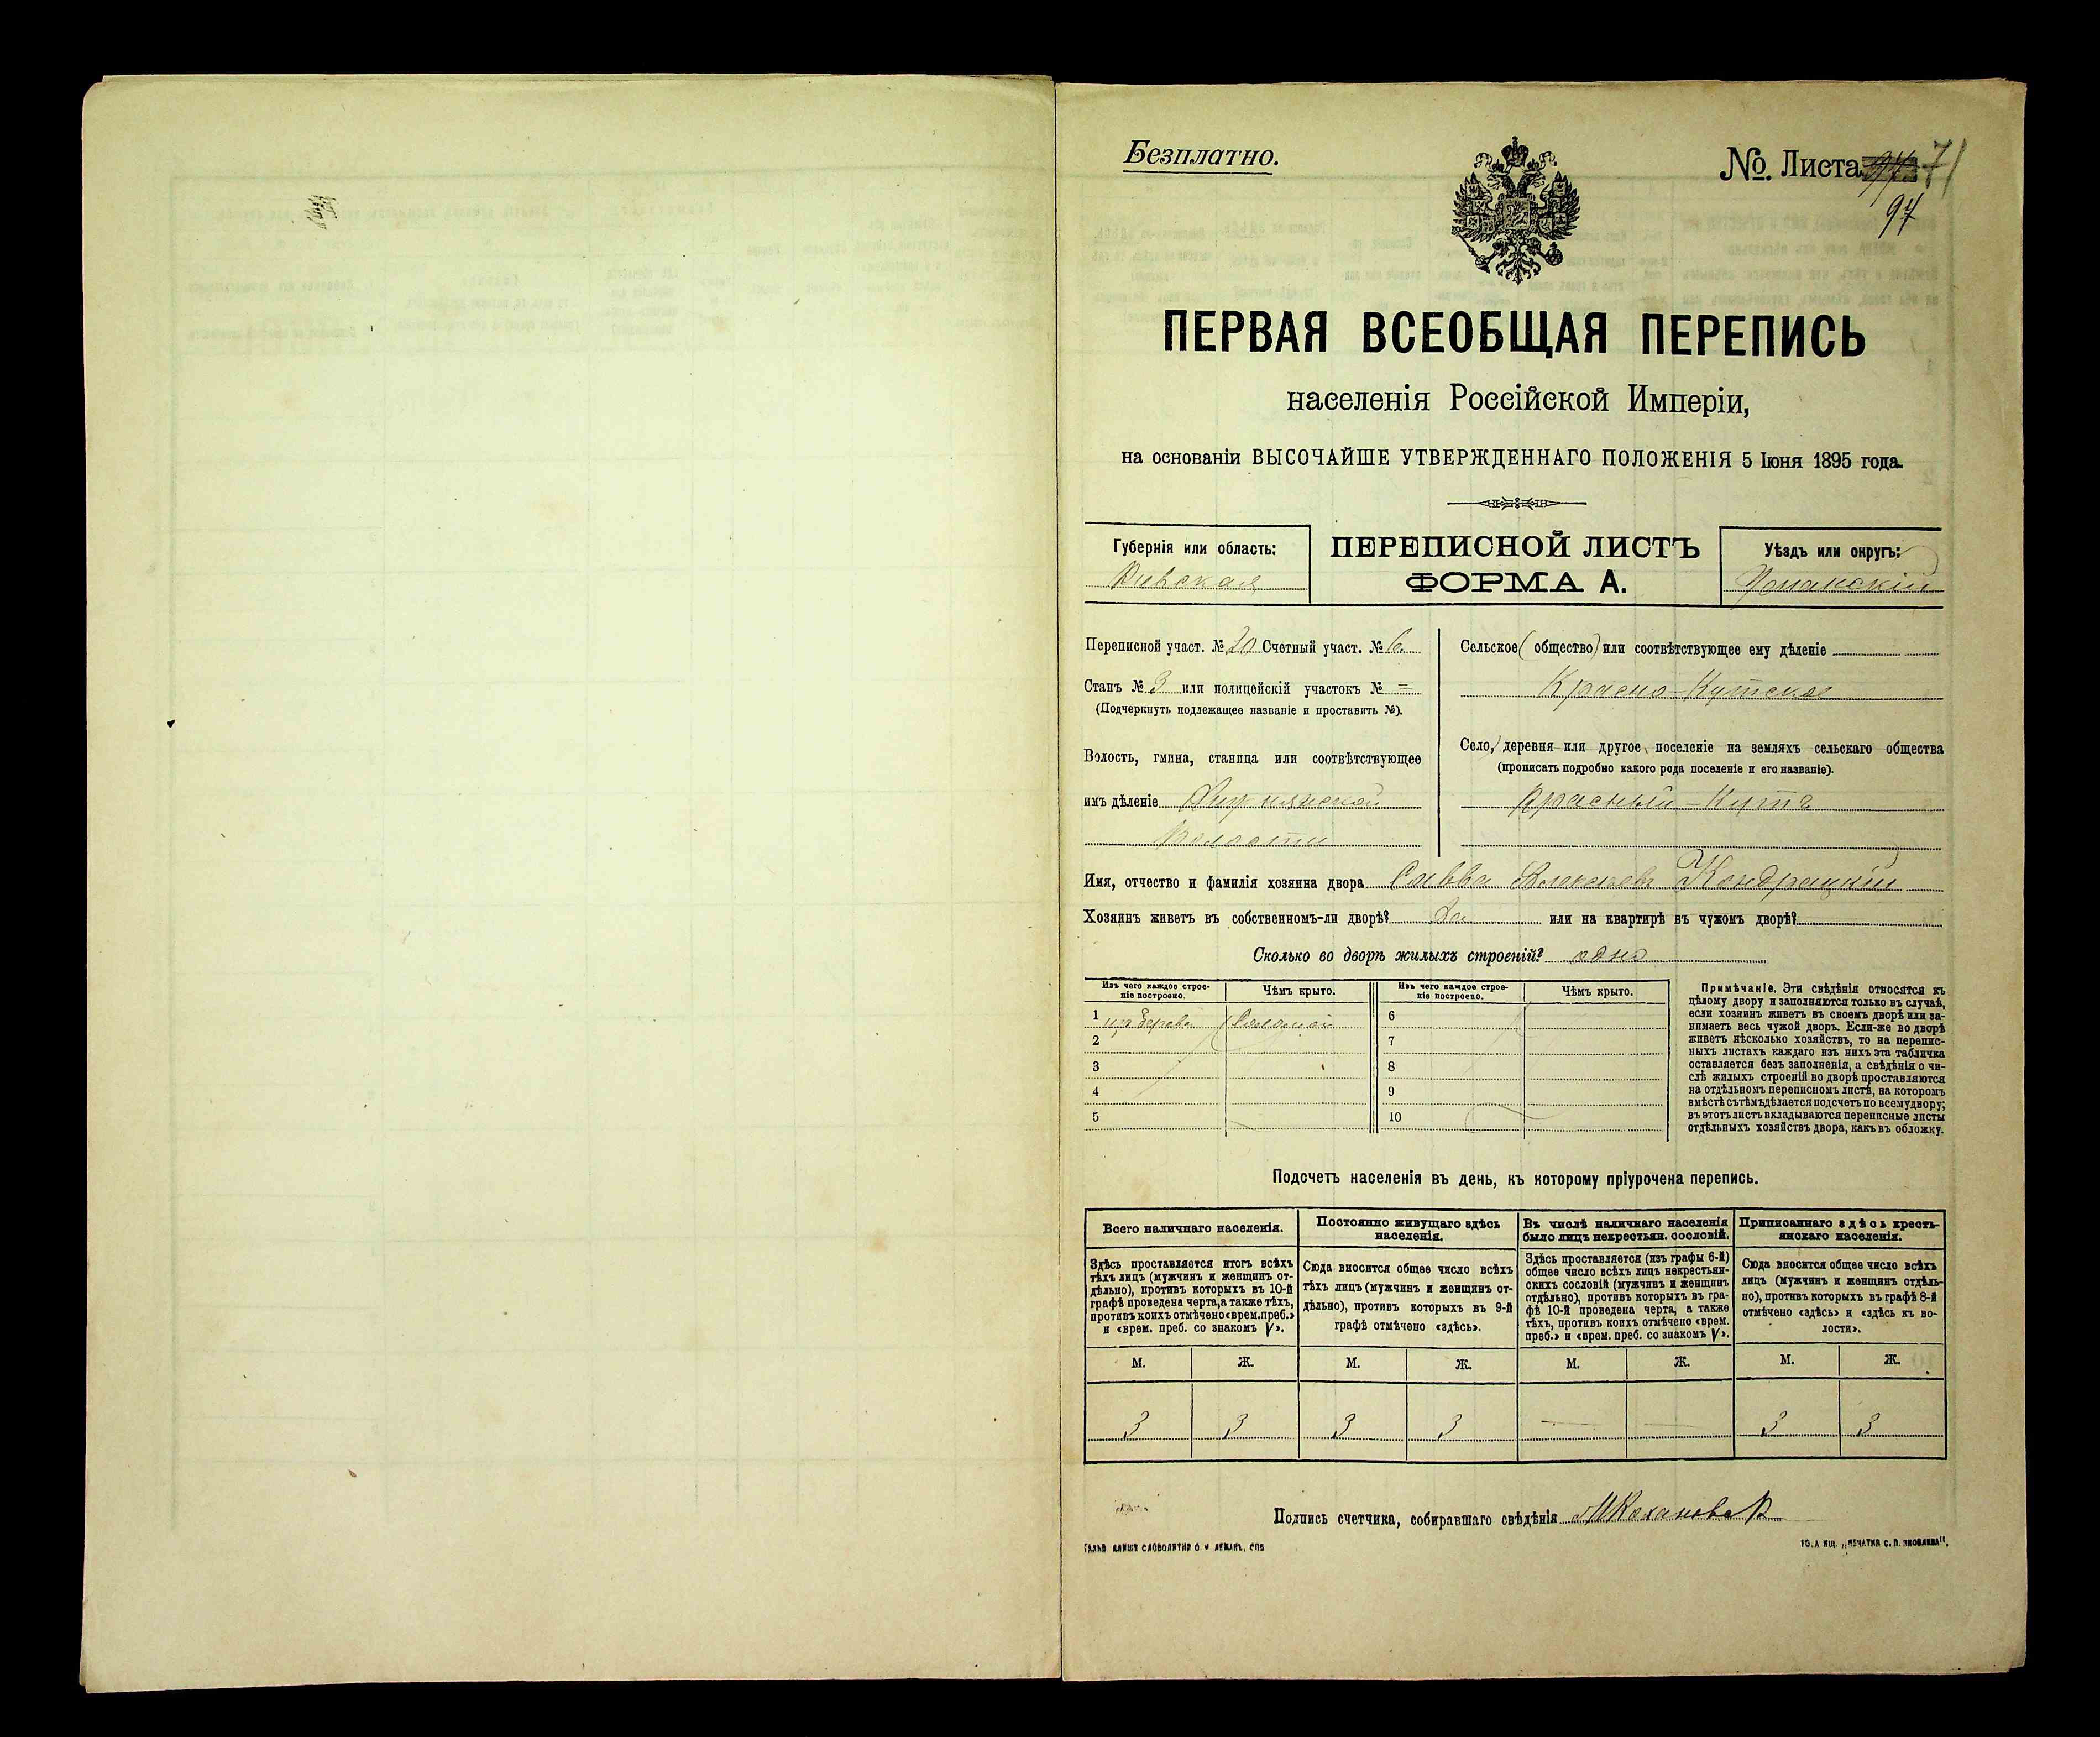 Безплатно.
№. Листа 71
97
ПЕРВАЯ ВСЕОБЩАЯ ПЕРЕПИСЬ
населенія Россійской Имперіи,
на основаніи ВЫСОЧАЙШЕ УТВЕРЖДЕННАГО ПОЛОЖЕНІЯ 5 Іюня 1895 года.
Губернія или область:
Кіевская
ПЕРЕПИСНОЙ ЛИСТЪ
ФОРМА А.
Уѣздъ или округъ:
Уманскій
Переписной участ. № 20 Счетный участ. № 6
Станъ № 3 или полицейскій участокъ № =
(Подчеркнуть подлежащее названіе и проставить №).
Волость, гмина, станица или соотвѣтствующее
имъ дѣленіе
Волости
Сельское (общество) или соотвѣтствующее ему дѣленіе
Красно-Кутское
Село, деревня или другое поселеніе на земляхъ сельскаго общества
(прописать подробно какого рода поселеніе и его названіе).
Красный-Кутъ
Имя, отчество и фамилія хозяина двора Савва Алексѣевъ Кондрацкій
Хозяинъ живетъ въ собственномъ-ли дворѣ? Да или на квартирѣ въ чужомъ дворѣ?
Сколько во дворѣ жилыхъ строеній? одно
Изъ чего каждое строе-
ніе построено.
Чѣмъ крыто.
Изъ чего каждое строе-
ніе построено.
Чѣмъ крыто.
1 изъ дерева Соломой 6
2 7
3 8
4 9
5 10
Примѣчаніе. Эти свѣдѣнія относятся къ
цѣлому двору и заполняются только въ случаѣ,
если хозяинъ живетъ въ своемъ дворѣ или за-
нимаетъ весь чужой дворъ. Если-же во дворѣ
живетъ нѣсколько хозяйствъ, то на перепис-
ныхъ листахъ каждаго изъ нихъ эта табличка
оставляется безъ заполненія, а свѣдѣнія о чи-
слѣ жилыхъ строеній во дворѣ проставляются
на отдѣльномъ переписномъ листѣ, на которомъ
вмѣстѣ съ тѣмъ дѣлается подсчетъ по всему двору;
въ этотъ листъ вкладываются переписные листы
отдѣльныхъ хозяйствъ двора, какъ въ обложку.
Подсчетъ населенія въ день, къ которому пріурочена перепись.
Всего наличнаго населенія.
Здѣсь проставляется итогъ всѣхъ
тѣхъ лицъ (мужчинъ и женщинъ от-
дѣльно), противъ которыхъ въ 10-й
графѣ проведена черта, а также тѣхъ,
противъ коихъ отмѣчено «врем. преб.»
и «врем. преб. со знакомъ V».
Постоянно живущаго здѣсь
населенія.
Сюда вносится общее число всѣхъ
тѣхъ лицъ (мужчинъ и женщинъ от-
дѣльно), противъ которыхъ въ 9-й
графѣ отмѣчено «здѣсь».
Въ числѣ наличнаго населенія
было лицъ некрестьян. сословій.
Здѣсь проставляется (изъ графы 6-й)
общее число всѣхъ лицъ некрестьян-
скихъ сословій (мужчинъ и женщинъ
отдѣльно), противъ которыхъ въ гра-
фѣ 10-й проведена черта, а также
тѣхъ, противъ коихъ отмѣчено «врем.
преб.» и «врем. преб. со знакомъ V».
Приписаннаго здѣсь кресть-
янскаго населенія.
Сюда вносится общее число всѣхъ
лицъ (мужчинъ и женщинъ отдѣль-
но), противъ которыхъ въ графѣ 8-й
отмѣчено «здѣсь» и «здѣсь къ во-
лости».
М. Ж. М. Ж. М. Ж. М. Ж.
3 3 3 3 — — 3 3
Подпись счетчика, собиравшаго свѣдѣнія